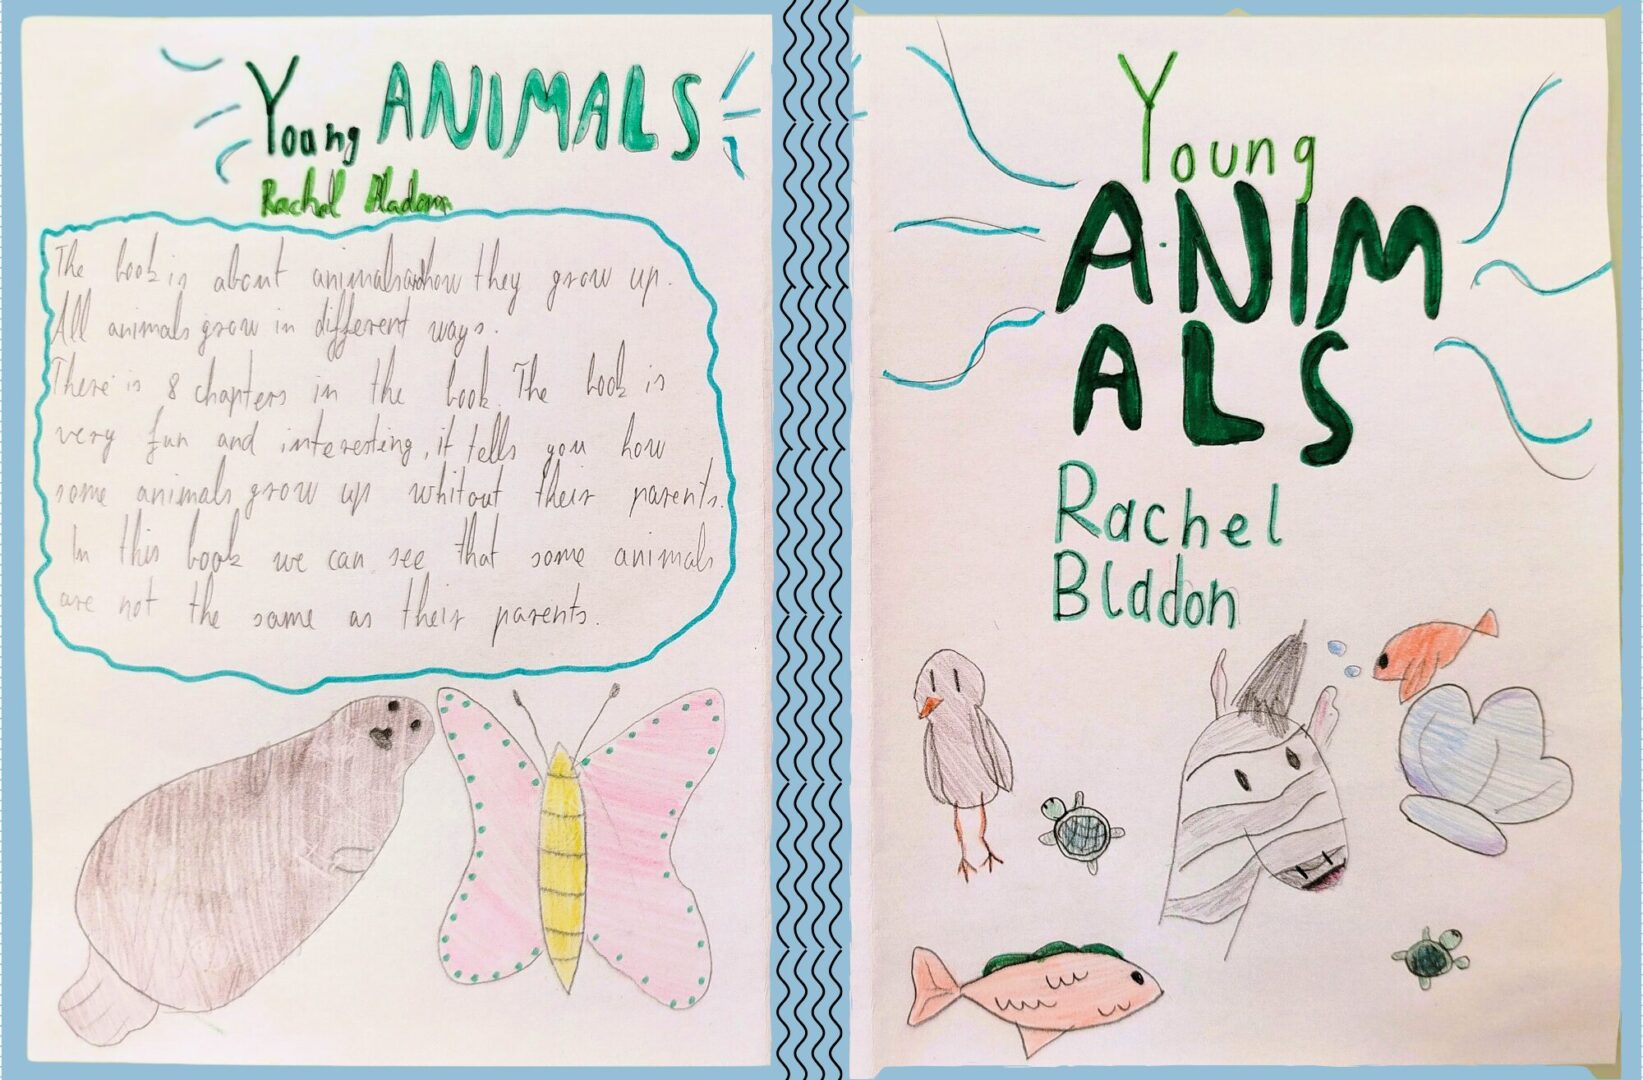 Young ANIMALS
Rachel Bladon
The book is about animals and how they grow up.
All animals grow in different ways.
There is 8 chapters in the book. The book is
very fun and interesting, it tells you how
some animals grow up whitout their parents.
In this book we can see that some animals
are not the same as their parents.
Young
ANIM
ALS
Rachel
Bladon